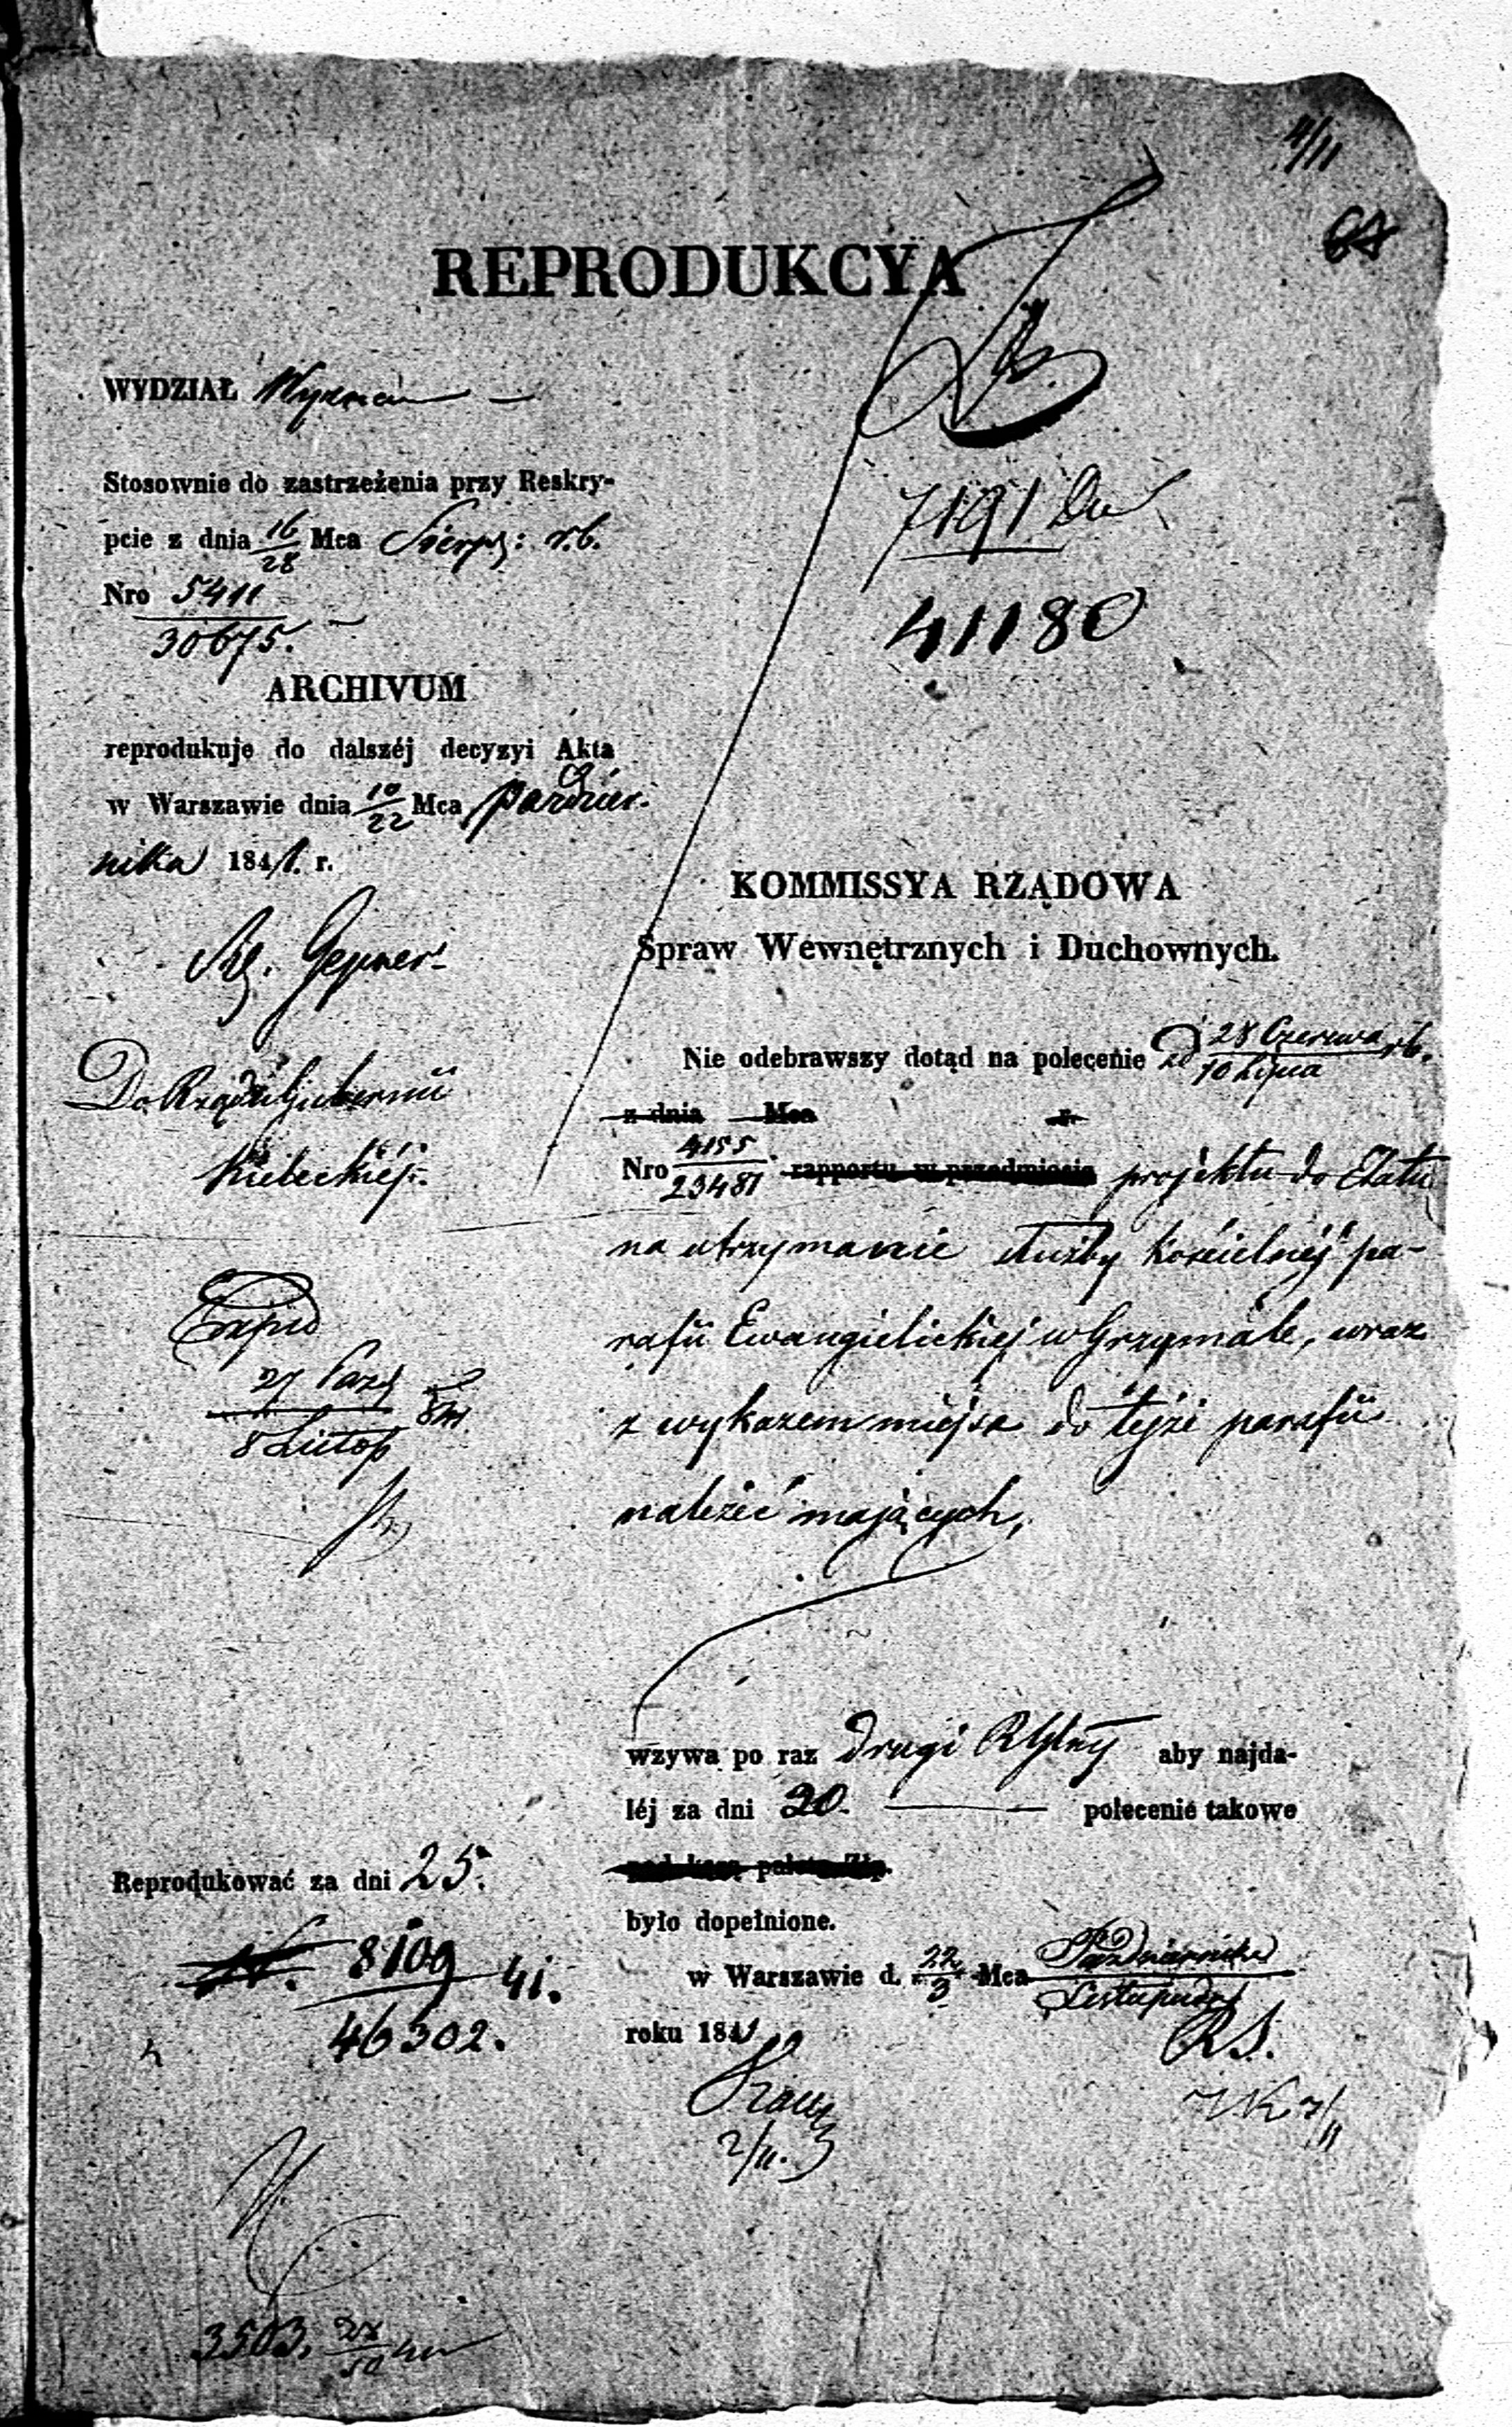 4/11
REPRODUKCYA
WYDZIAŁ Wyznań
7191
41180
Stosownie do zastrzeżenia przy Reskry-
pcie z dnia 16/28 Mca Sierp: r.b.
Nro 5411
30675.
ARCHIVUM
reprodukuje do dalszéj decyzyi Akta
w Warszawie dnia 10/22 Mca Paździer-
nika 1841. r.
Do Rządu Gubernii
Kieleckiéj.
Exped
27 Paźd
8 Listop
Reprodukować za dni 25.
8109 41.
46302.
3503.
KOMMISSYA RZĄDOWA
Spraw Wewnętrznych i Duchownych.
Nie odebrawszy dotąd na polecenie zd 28 Czerwca/10 Lipca rb.
z dnia Mca r.
Nro 4155/23481 rapportu w przedmiocie projektu do Etatu
na utrzymanie służby kościelnéj pa-
rafii Ewangielickiéj w Grzymale, wraz
z wykazem miejsc do tejże parafii
należeć mających,
wzywa po raz drugi aby najda-
léj za dni 20. polecenie takowe
było dopełnione.
w Warszawie d. 22/3 Mca Października/Listopada
roku 1841
RS.
2/11.